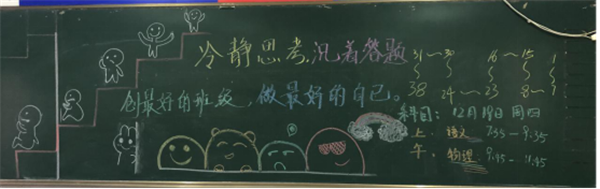 冷静思考,沉着答题
创最好的班级,做最好的自己。
31~30 16~15 1
38 24~23 8~9
科目: 12月19日 周四
上 语文 7:55-9:35
午: 物理 9:45-11:45